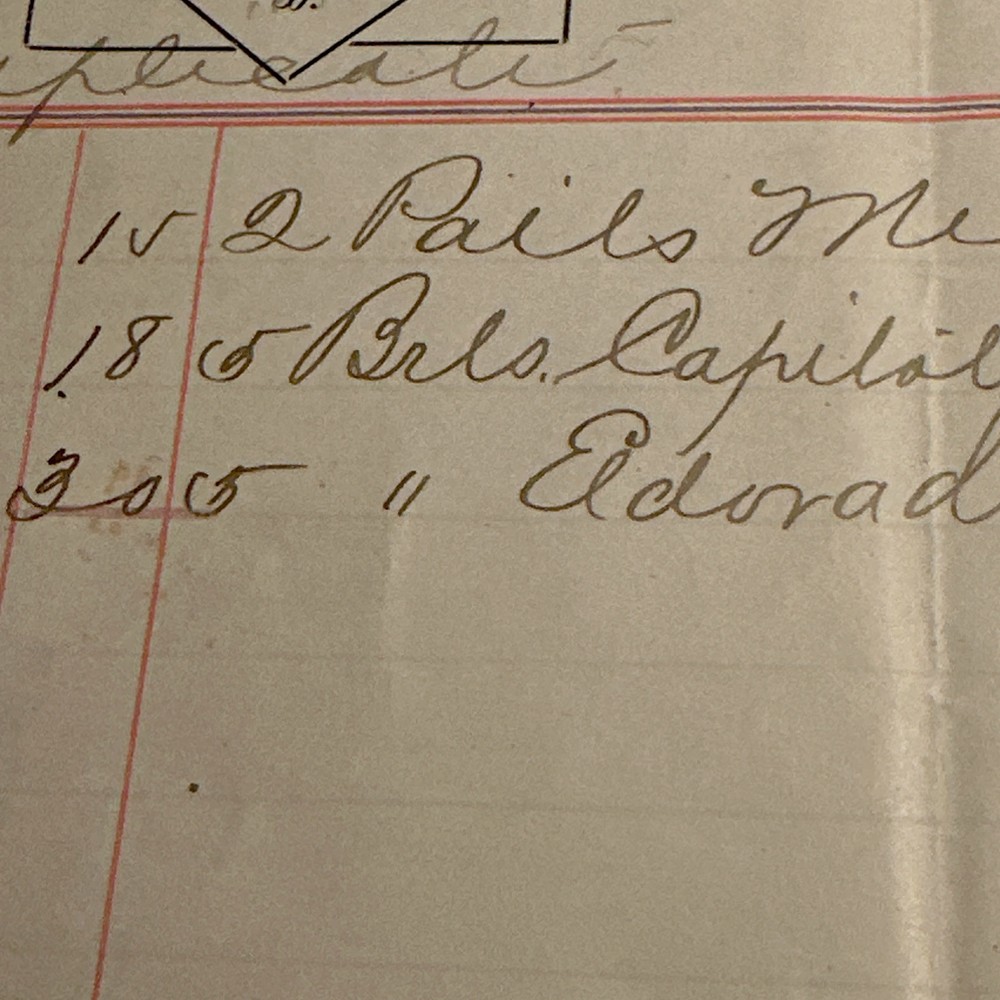 plicate
15 2 Pails Me
18 5 Brls. Capitol
30 5 " Eldorad